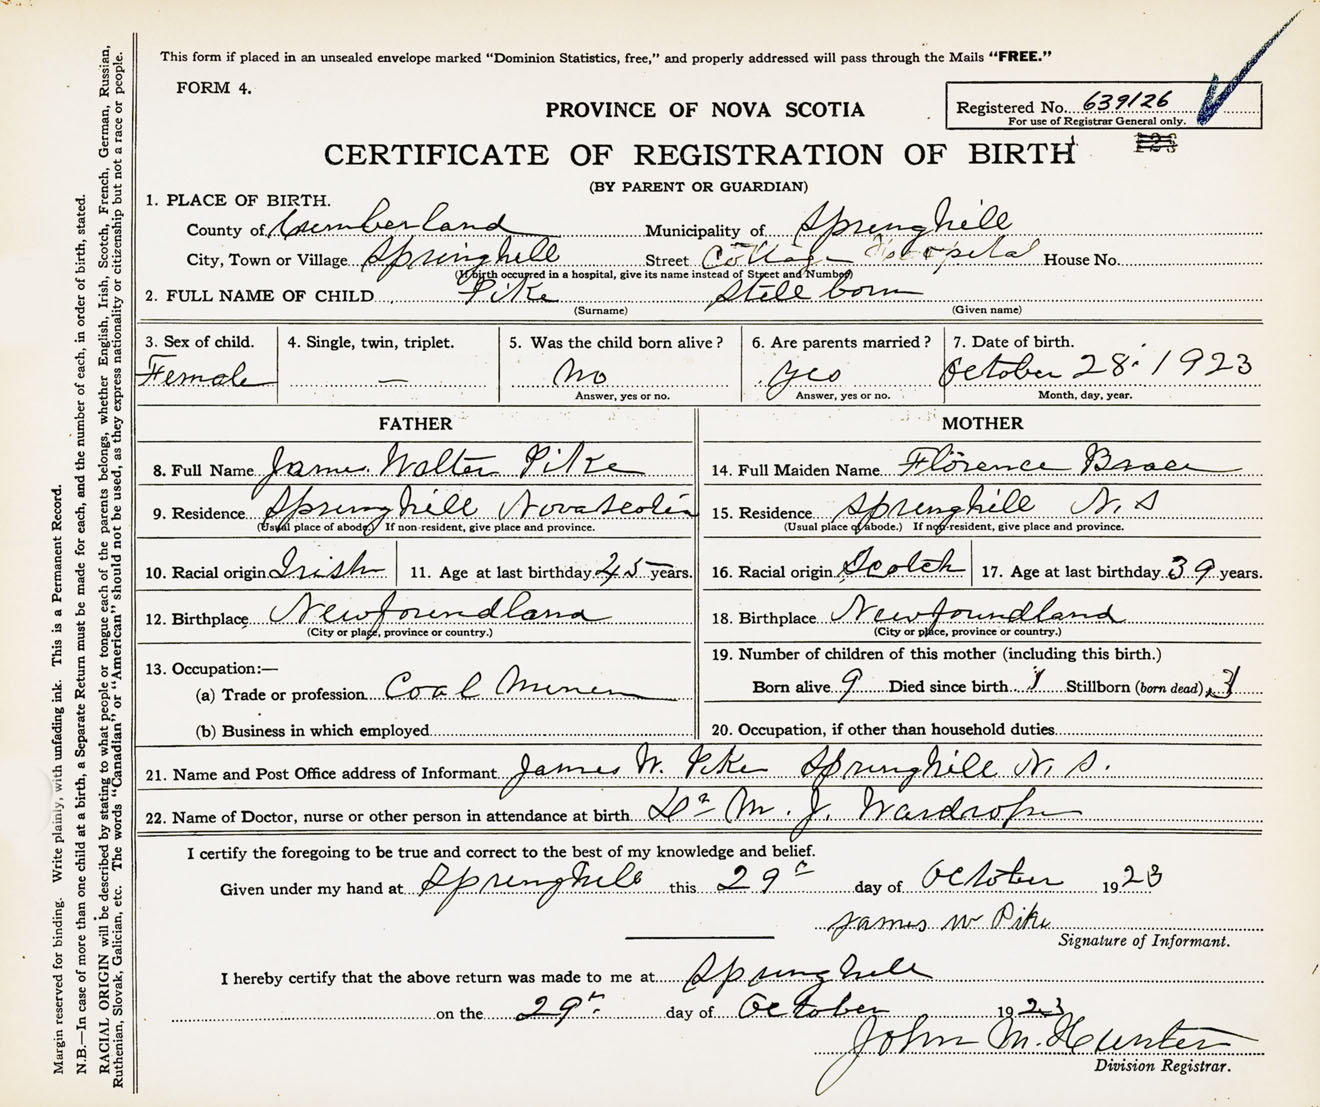 This form if placed in an unsealed envelope marked "Dominion Statistics, free," and properly addressed will pass through the Mails "FREE."
FORM 4.
Registered No. 639126
For use of Registrar General only.
PROVINCE OF NOVA SCOTIA
CERTIFICATE OF REGISTRATION OF BIRTH
(BY PARENT OR GUARDIAN)
1. PLACE OF BIRTH.
County of Cumberland Municipality of Springhill
City, Town or Village Springhill Street Cottage Hospital House No.
(If birth occurred in a hospital, give its name instead of Street and Number)
2. FULL NAME OF CHILD Pike Still born
(Surname) (Given name)
3. Sex of child. 4. Single, twin, triplet. 5. Was the child born alive? 6. Are parents married? 7. Date of birth.
Female — No yes October 28. 1923
Answer, yes or no. Answer, yes or no. Month, day, year.
FATHER MOTHER
8. Full Name James Walter Pike 14. Full Maiden Name Florence
9. Residence Springhill Nova Scotia 15. Residence Springhill N. S
(Usual place of abode) If non-resident, give place and province. (Usual place of abode.) If non-resident, give place and province.
10. Racial origin Irish 11. Age at last birthday 45 years. 16. Racial origin Scotch 17. Age at last birthday 39 years.
12. Birthplace Newfoundland 18. Birthplace Newfoundland
(City or place, province or country.) (City or place, province or country.)
13. Occupation:— 19. Number of children of this mother (including this birth.)
(a) Trade or profession Coal Miner Born alive 9 Died since birth 1 Stillborn (born dead) 3
(b) Business in which employed 20. Occupation, if other than household duties
21. Name and Post Office address of Informant James W. Pike Springhill N. S.
22. Name of Doctor, nurse or other person in attendance at birth Dr M. J. Wardrope
I certify the foregoing to be true and correct to the best of my knowledge and belief.
Given under my hand at Springhill this 29th day of October 1923
James W Pike
Signature of Informant.
I hereby certify that the above return was made to me at Springhill
on the 29th day of October 1923
John M. Hunter
Division Registrar.
Margin reserved for binding. Write plainly, with unfading ink. This is a Permanent Record.
N.B.—In case of more than one child at a birth, a Separate Return must be made for each, and the number of each, in order of birth, stated.
RACIAL ORIGIN will be described by stating to what people or tongue each of the parents belongs, whether English, Irish, Scotch, French, German, Russian,
Ruthenian, Slovak, Galician, etc. The words "Canadian" or "American" should not be used, as they express nationality or citizenship but not a race or people.